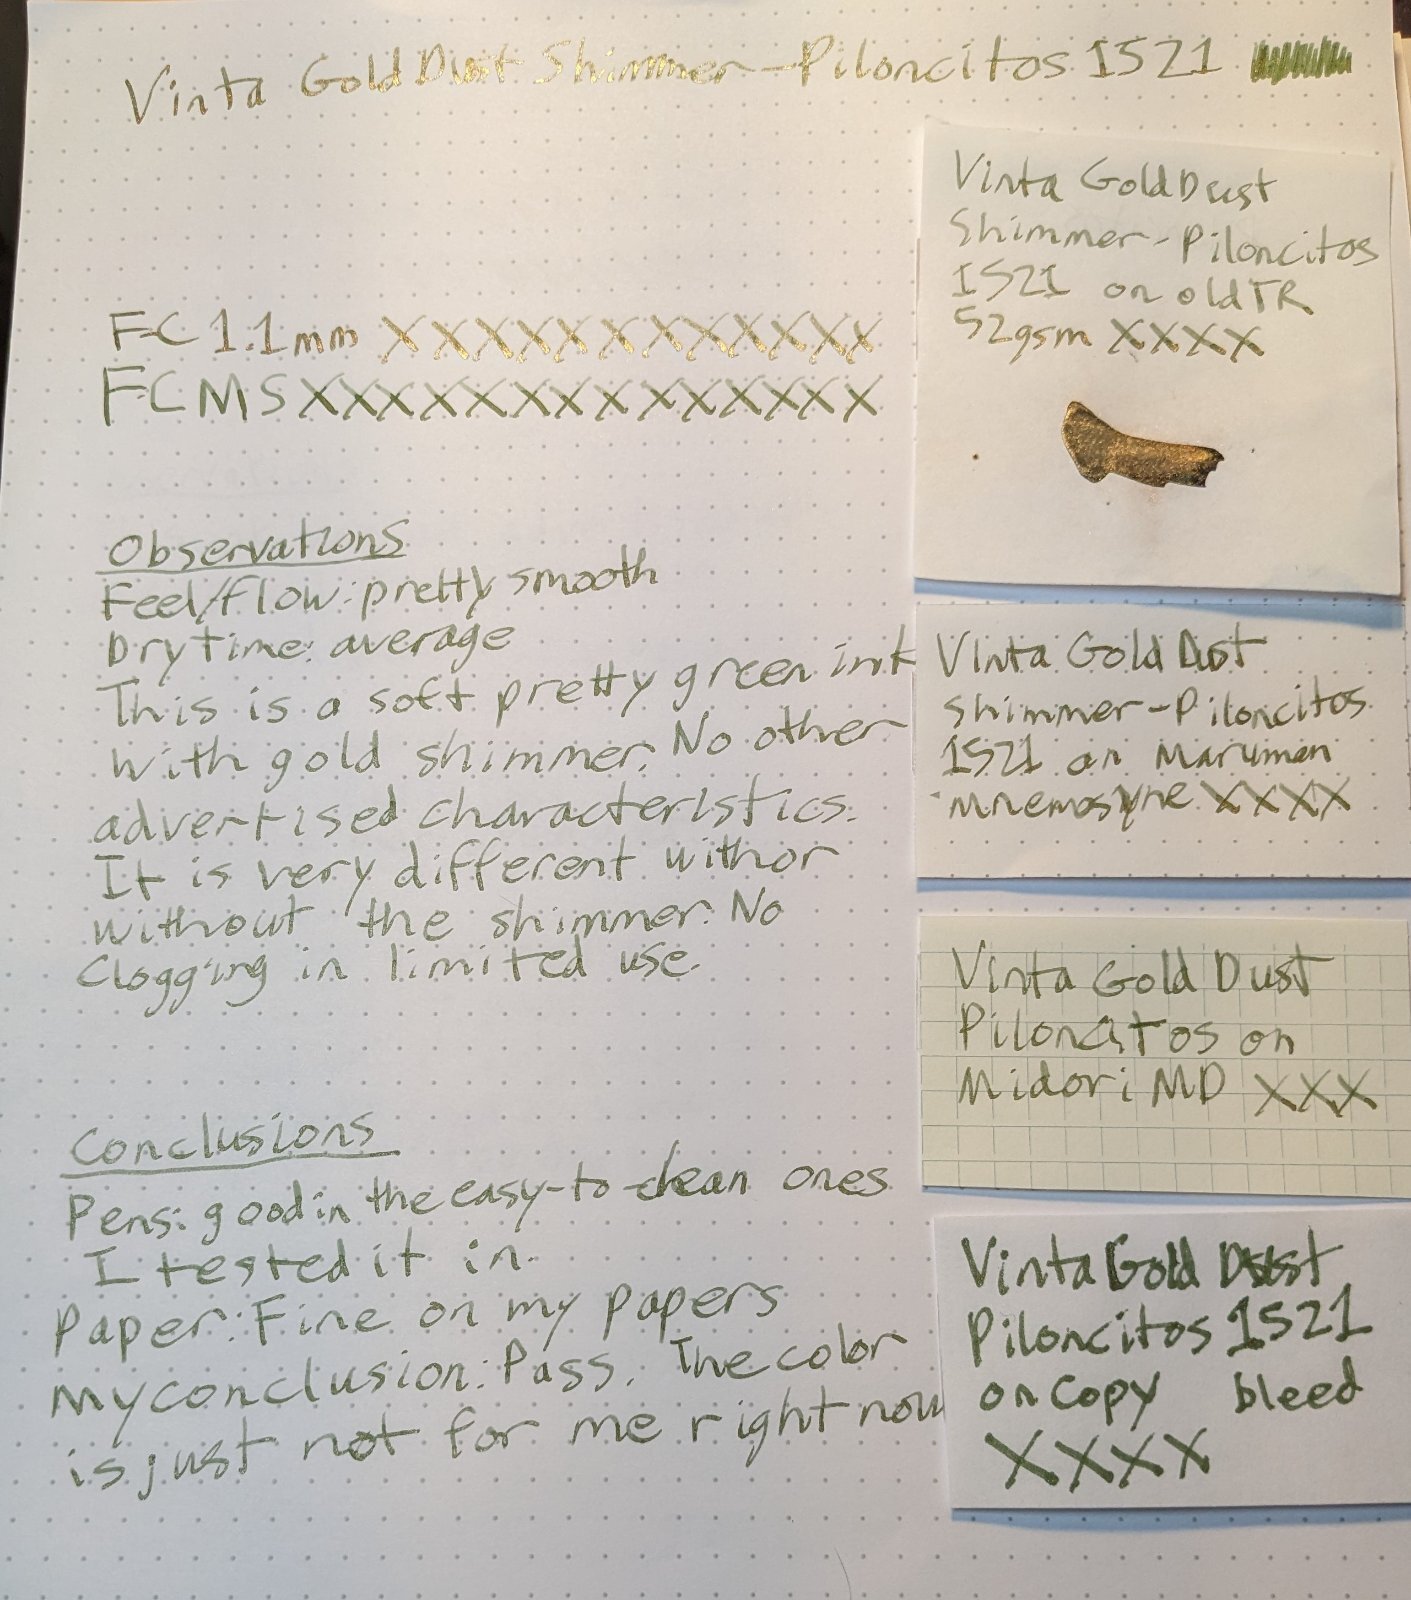 Vinta Gold Dust Shimmer-Piloncitos 1521
FC 1.1mm XXXXXXXXXXXX
FC MS XXXXXXXXXXXXXX
Observations
Feel/flow: pretty smooth
Dry time: average
This is a soft pretty green ink
with gold shimmer. No other
advertised characteristics.
It is very different with or
without the shimmer. No
clogging in limited use.
Conclusions
Pens: good in the easy-to-clean ones
I tested it in.
Paper: Fine on my papers
My conclusion: Pass. The color
is just not for me right now
Vinta Gold Dust
Shimmer-Piloncitos
1521 on old TR
52gsm XXXX
Vinta Gold Dust
Shimmer-Piloncitos
1521 on Maruman
Mnemosyne XXXX
Vinta Gold Dust
Piloncitos on
Midori MD XXX
Vinta Gold Dust
Piloncitos 1521
on copy bleed
XXXX